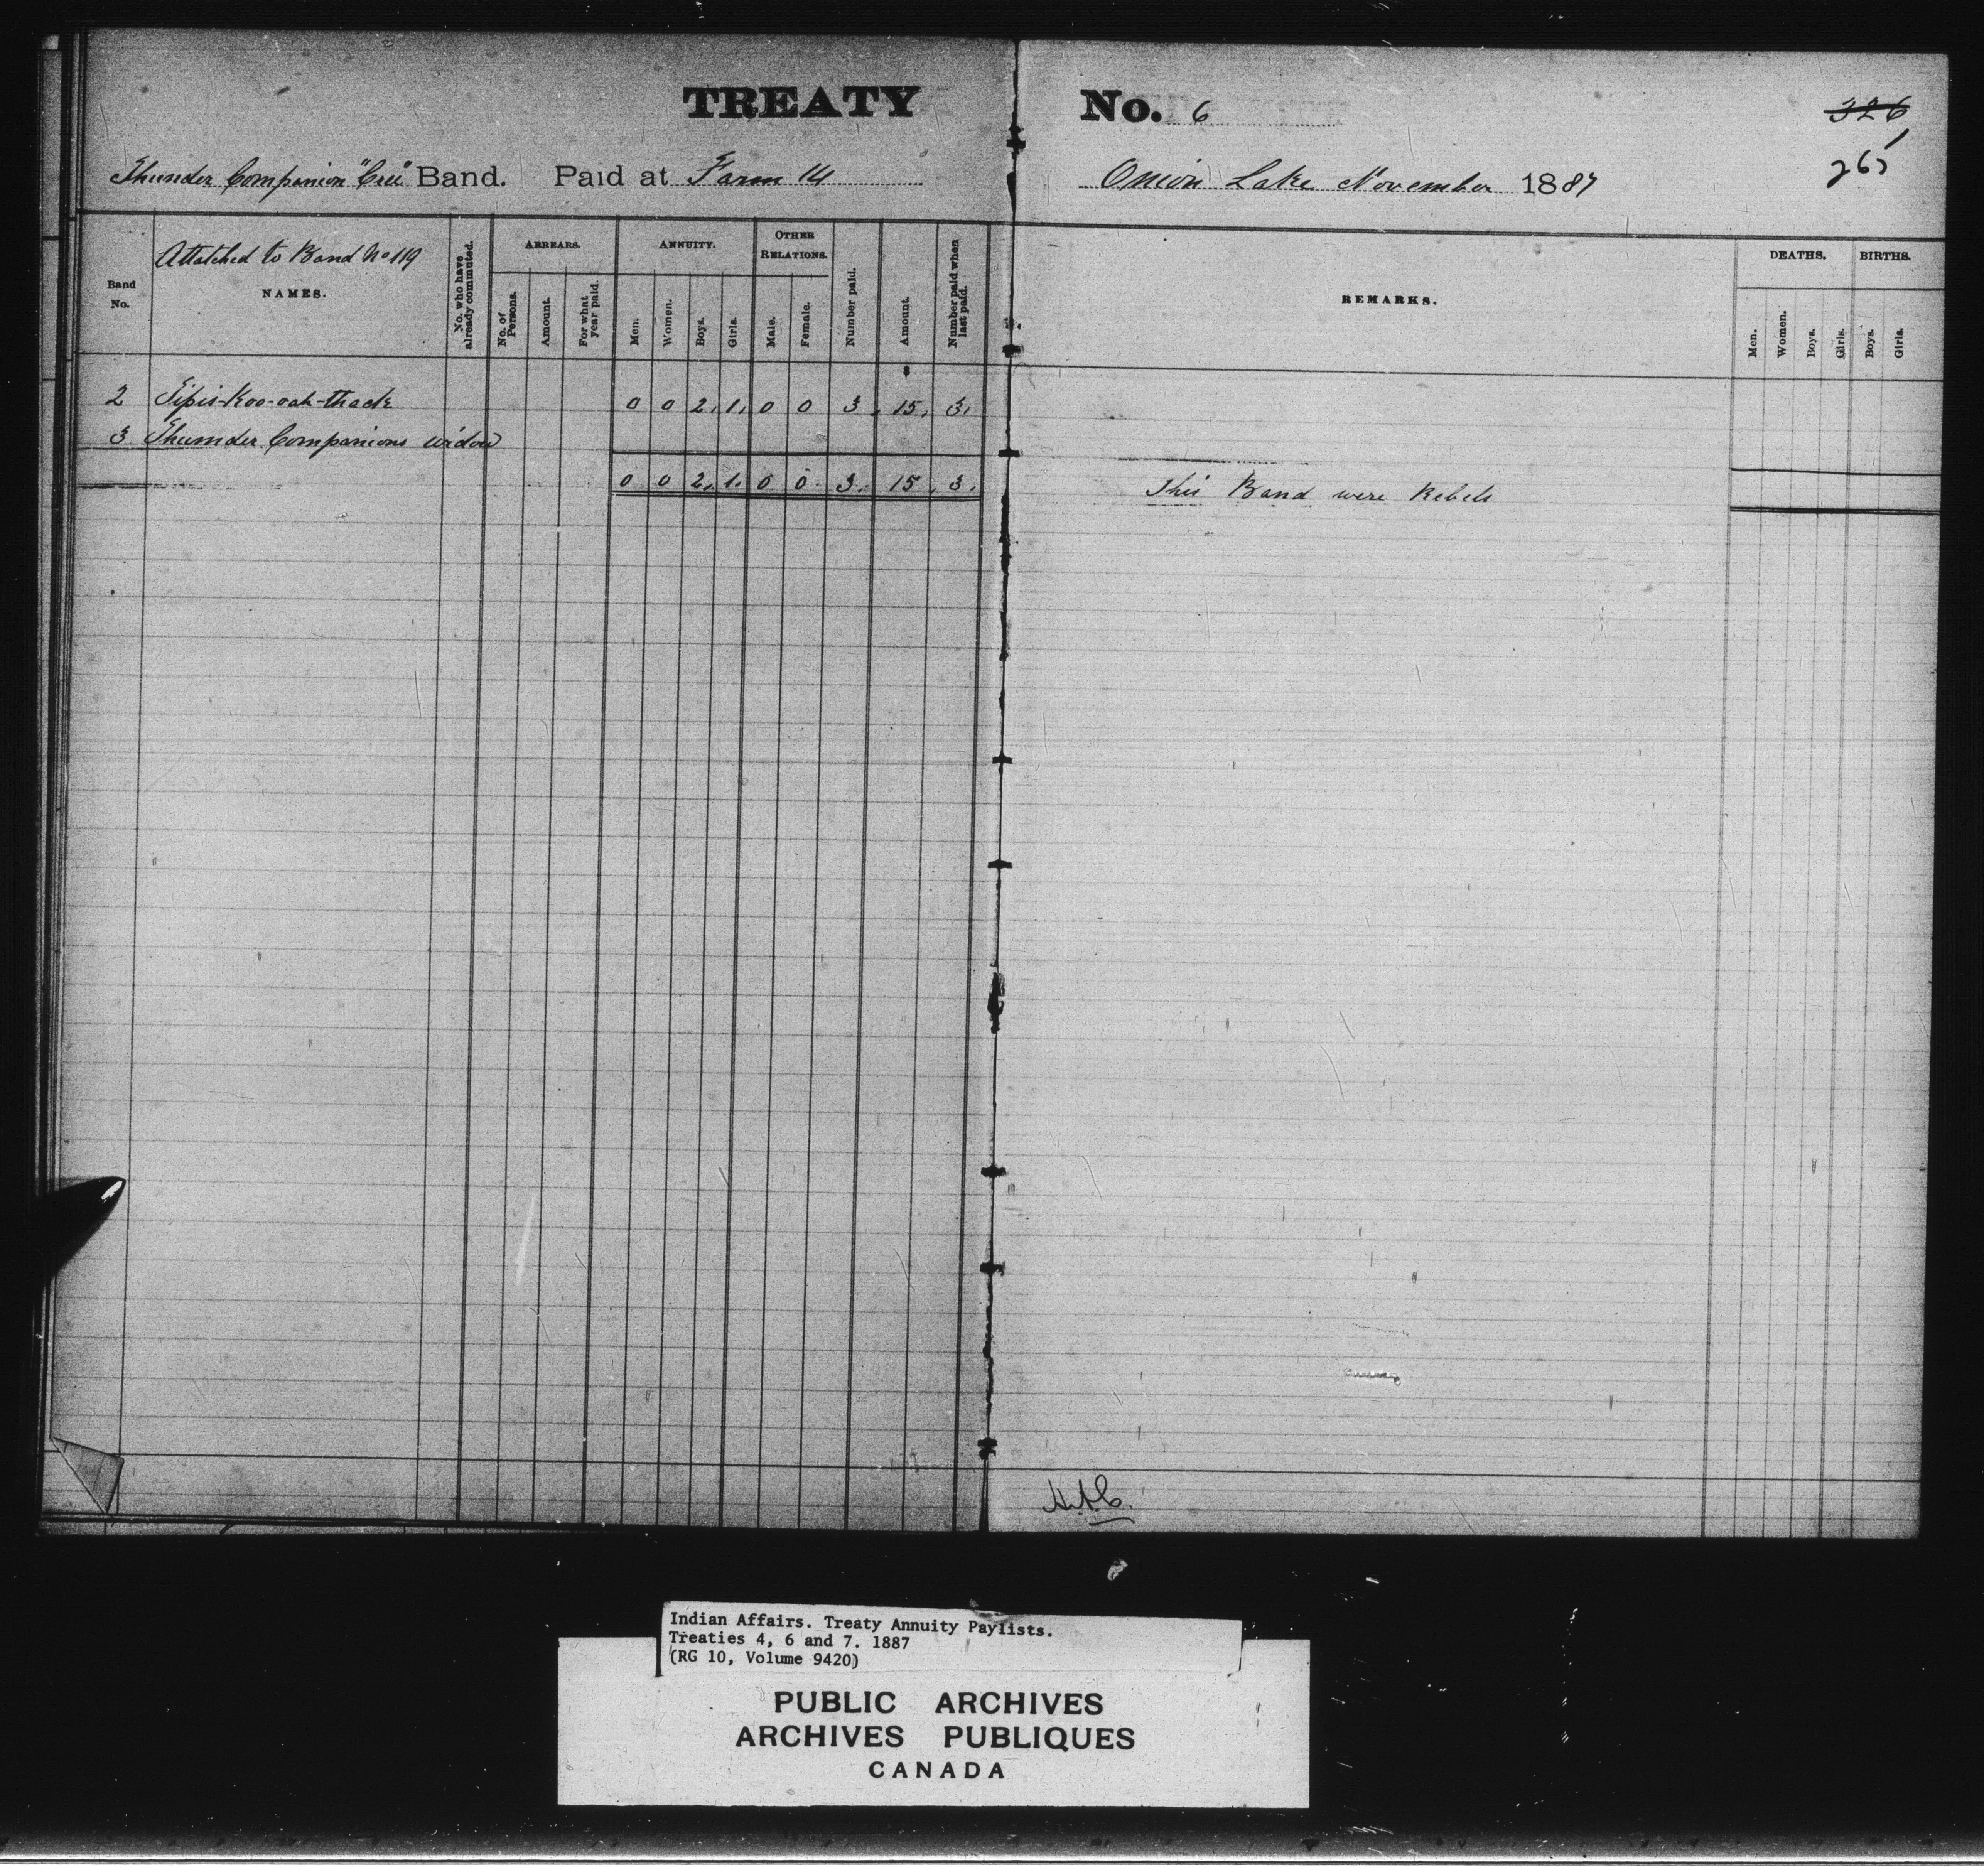 TREATY No. 6
326
265
Thunder Companion "Cree" Band. Paid at Farm 14 Onion Lake November 1887
Attatched to Band No 119
Band No.
NAMES.
No. who have already commuted.
ARREARS.
No. of Persons.
Amount.
For what year paid.
ANNUITY.
Men.
Women.
Boys.
Girls.
OTHER RELATIONS.
Male.
Female.
Number paid.
Amount.
Number paid when last paid.
REMARKS.
DEATHS.
Men.
Women.
Boys.
Girls.
BIRTHS.
Boys.
Girls.
$
2 Sipis-Koo-oah-thack 0 0 2. 1. 0 0 3. 15. 3.
3 Thunder Companions widow
0 0 2. 1. 0 0. 3. 15. 3. This Band were Rebels
Indian Affairs. Treaty Annuity Paylists.
Treaties 4, 6 and 7. 1887
(RG 10, Volume 9420)
PUBLIC ARCHIVES
ARCHIVES PUBLIQUES
CANADA